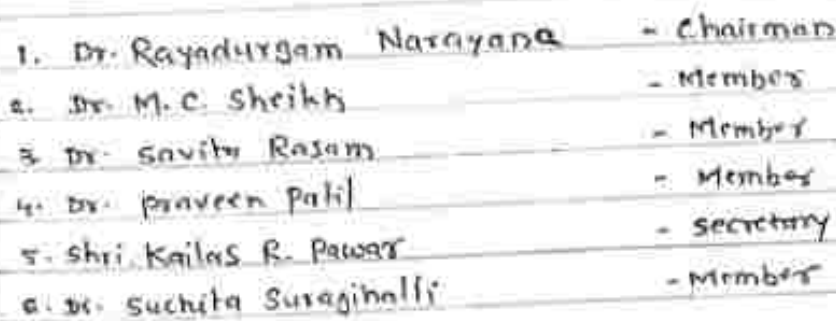 1. Dr. Rayadurgam Narayana - Chairman
2. Dr. M. C. Sheikh - Member
3. Dr. Savita Rasam - Member
4. Dr. praveen Patil - Member
5. Shri. Kailas R. Pawar - secretory
6. Dr. Suchita Suragihalli - Member